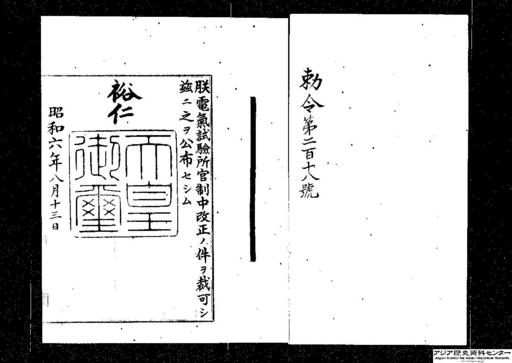 勅令第二百十八號
朕電氣試驗所官制中改正ノ件ヲ裁可シ
茲ニ之ヲ公布セシム
裕仁
天皇御璽
昭和六年八月十三日
アジア歴史資料センター
Japan Center for Asian Historical Records